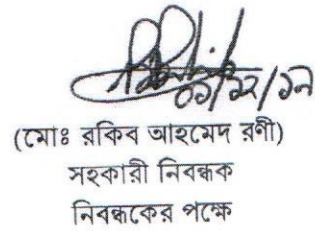 ০১/১২/১৩
(মোঃ রকিব আহমেদ রণী)
সহকারী নিবন্ধক
নিবন্ধকের পক্ষে